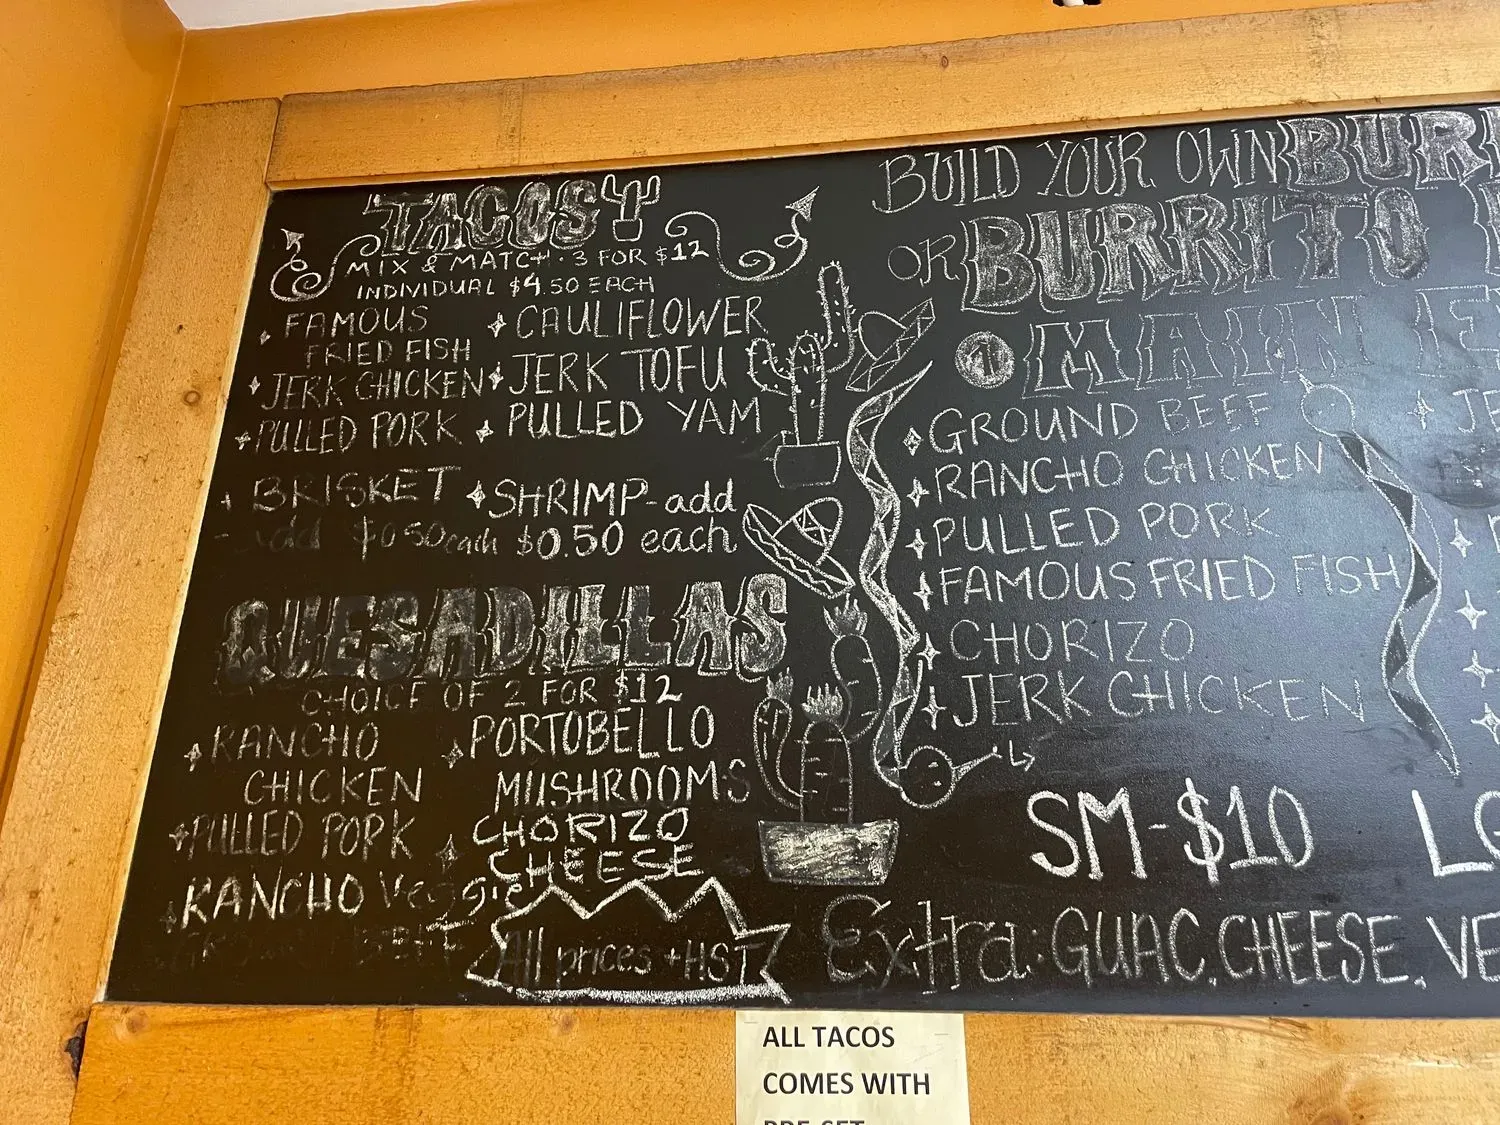 TACOS
MIX & MATCH · 3 FOR $12
INDIVIDUAL $4.50 EACH
FAMOUS
FRIED FISH
JERK CHICKEN
PULLED PORK
BRISKET
add $0.50 each
CAULIFLOWER
JERK TOFU
PULLED YAM
SHRIMP-add
$0.50 each
QUESADILLAS
CHOICE OF 2 FOR $12
RANCHO
CHICKEN
PULLED PORK
RANCHO Veggie
GROUND BEEF
PORTOBELLO
MUSHROOMS
CHORIZO
CHEESE
All prices + HST
BUILD YOUR OWN
OR BURRITO
1 MAIN
GROUND BEEF
RANCHO CHICKEN
PULLED PORK
FAMOUS FRIED FISH
CHORIZO
JERK CHICKEN
SM-$10
Extra: GUAC, CHEESE,
ALL TACOS
COMES WITH
PRE-SET